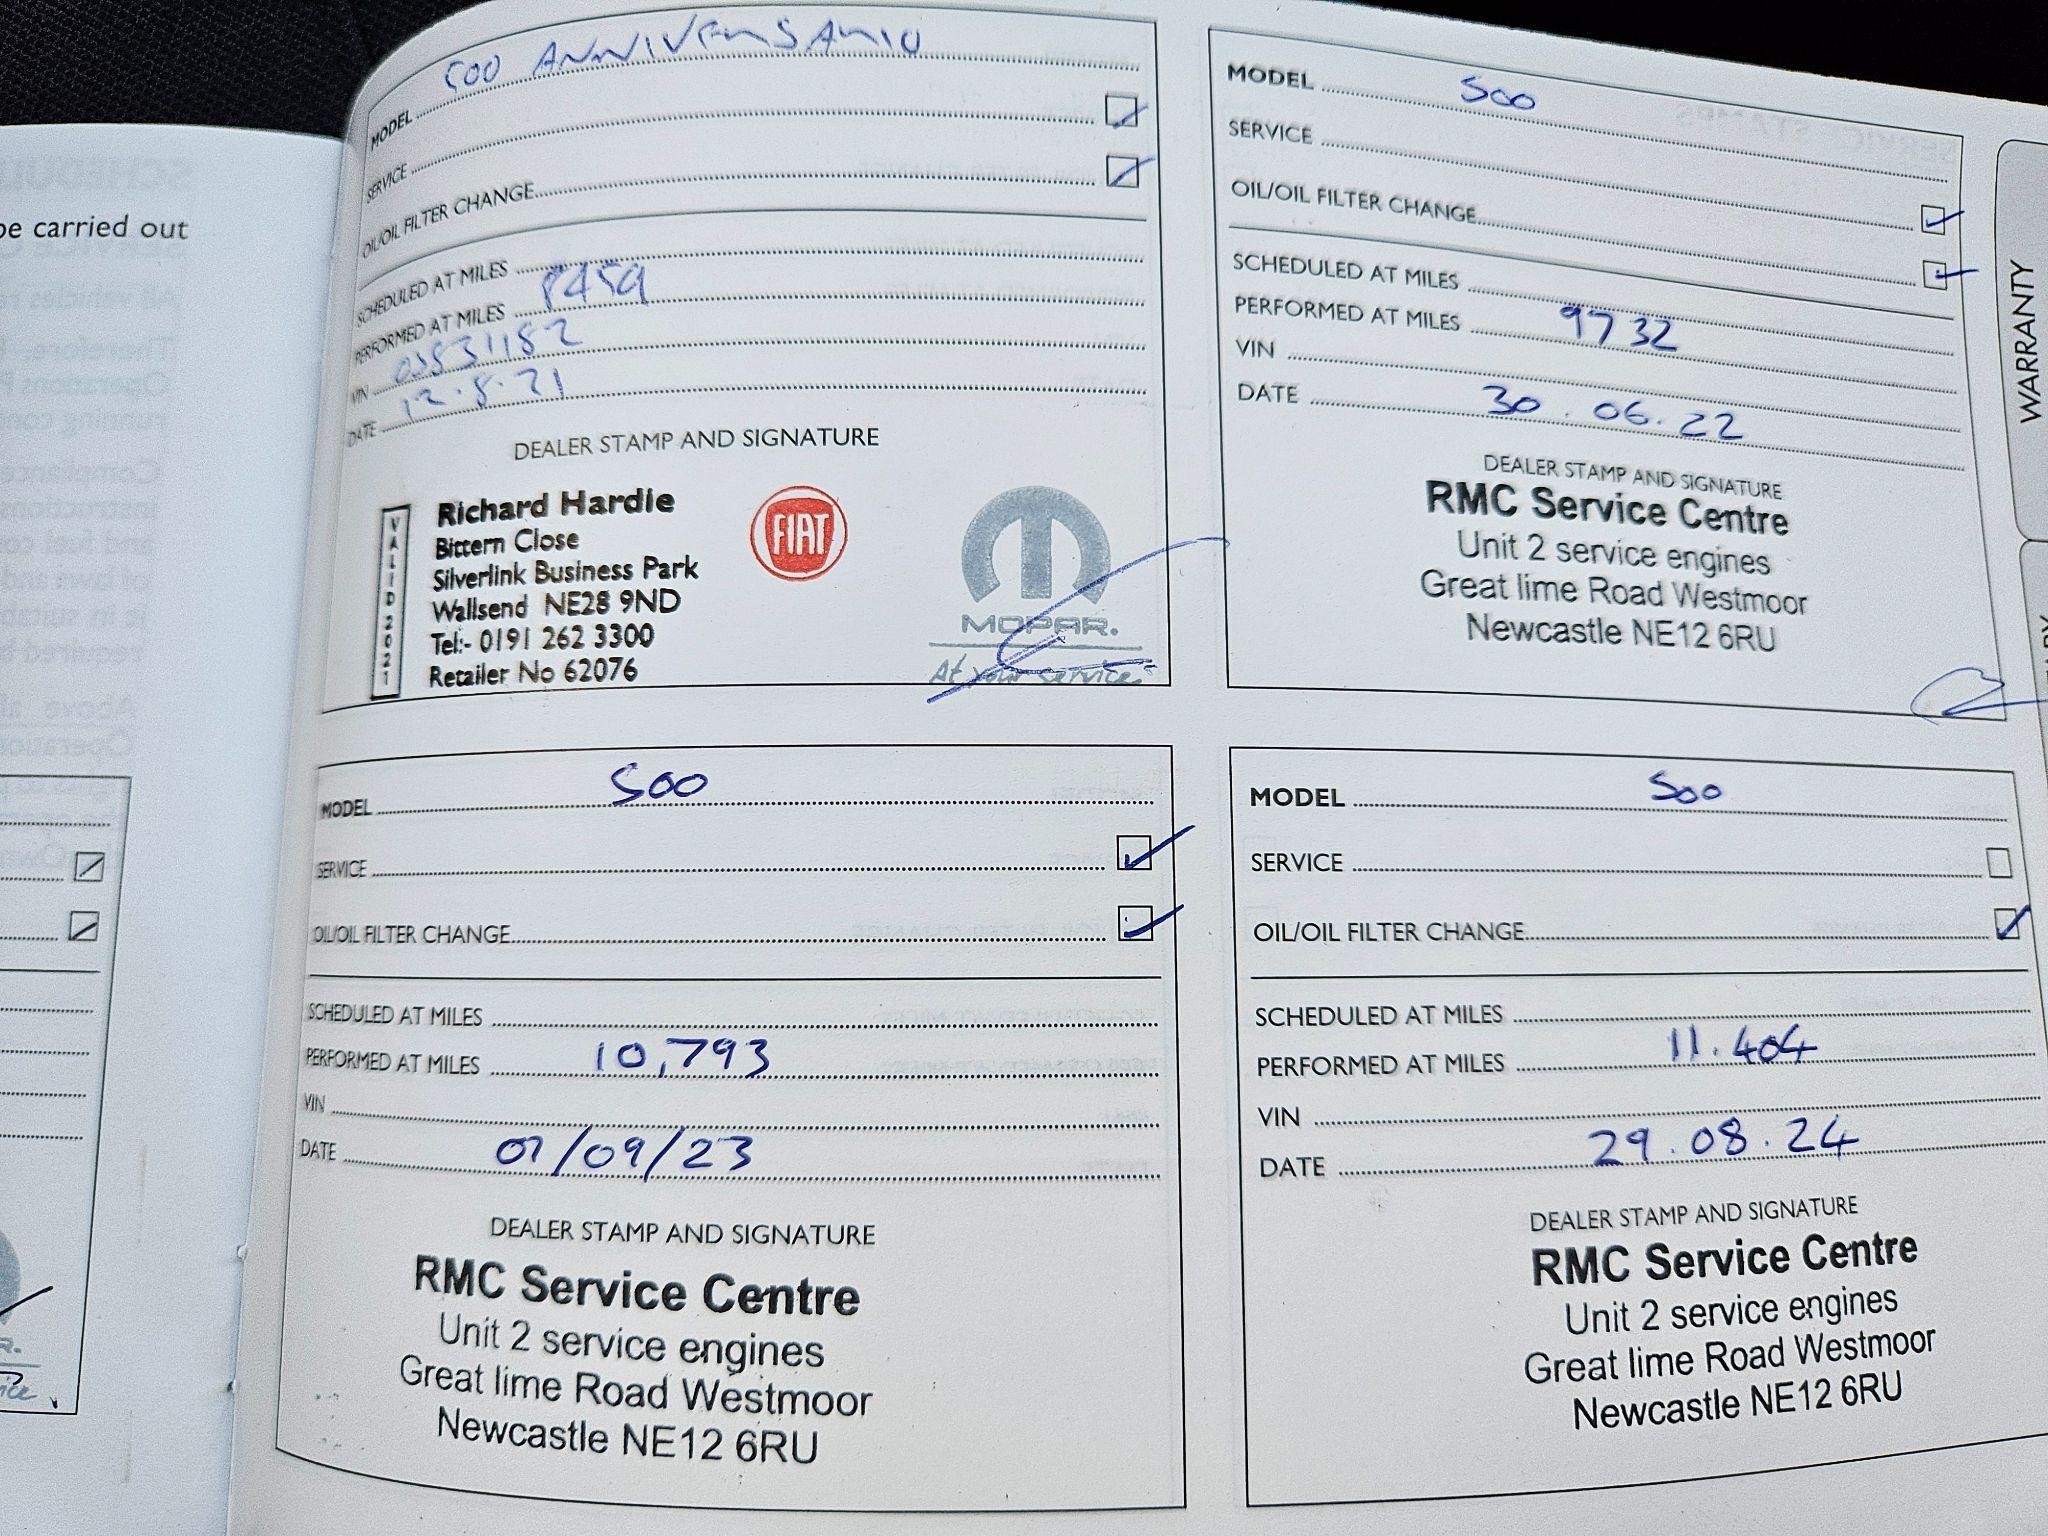 be carried out
MODEL 500 ANNIVERSARIO
SERVICE
OIL/OIL FILTER CHANGE
SCHEDULED AT MILES
PERFORMED AT MILES 8459
VIN
DATE 12.8.21
DEALER STAMP AND SIGNATURE
VALID 2021
Richard Hardie
Bittern Close
Silverlink Business Park
Wallsend NE28 9ND
Tel:- 0191 262 3300
Retailer No 62076
FIAT
MOPAR.
At your service
MODEL 500
SERVICE
OIL/OIL FILTER CHANGE
SCHEDULED AT MILES
PERFORMED AT MILES 9732
VIN
DATE 30.06.22
DEALER STAMP AND SIGNATURE
RMC Service Centre
Unit 2 service engines
Great lime Road Westmoor
Newcastle NE12 6RU
WARRANTY
MODEL 500
SERVICE
OIL/OIL FILTER CHANGE
SCHEDULED AT MILES
PERFORMED AT MILES 10,793
VIN
DATE 07/09/23
DEALER STAMP AND SIGNATURE
RMC Service Centre
Unit 2 service engines
Great lime Road Westmoor
Newcastle NE12 6RU
MODEL 500
SERVICE
OIL/OIL FILTER CHANGE
SCHEDULED AT MILES
PERFORMED AT MILES 11.404
VIN
DATE 29.08.24
DEALER STAMP AND SIGNATURE
RMC Service Centre
Unit 2 service engines
Great lime Road Westmoor
Newcastle NE12 6RU